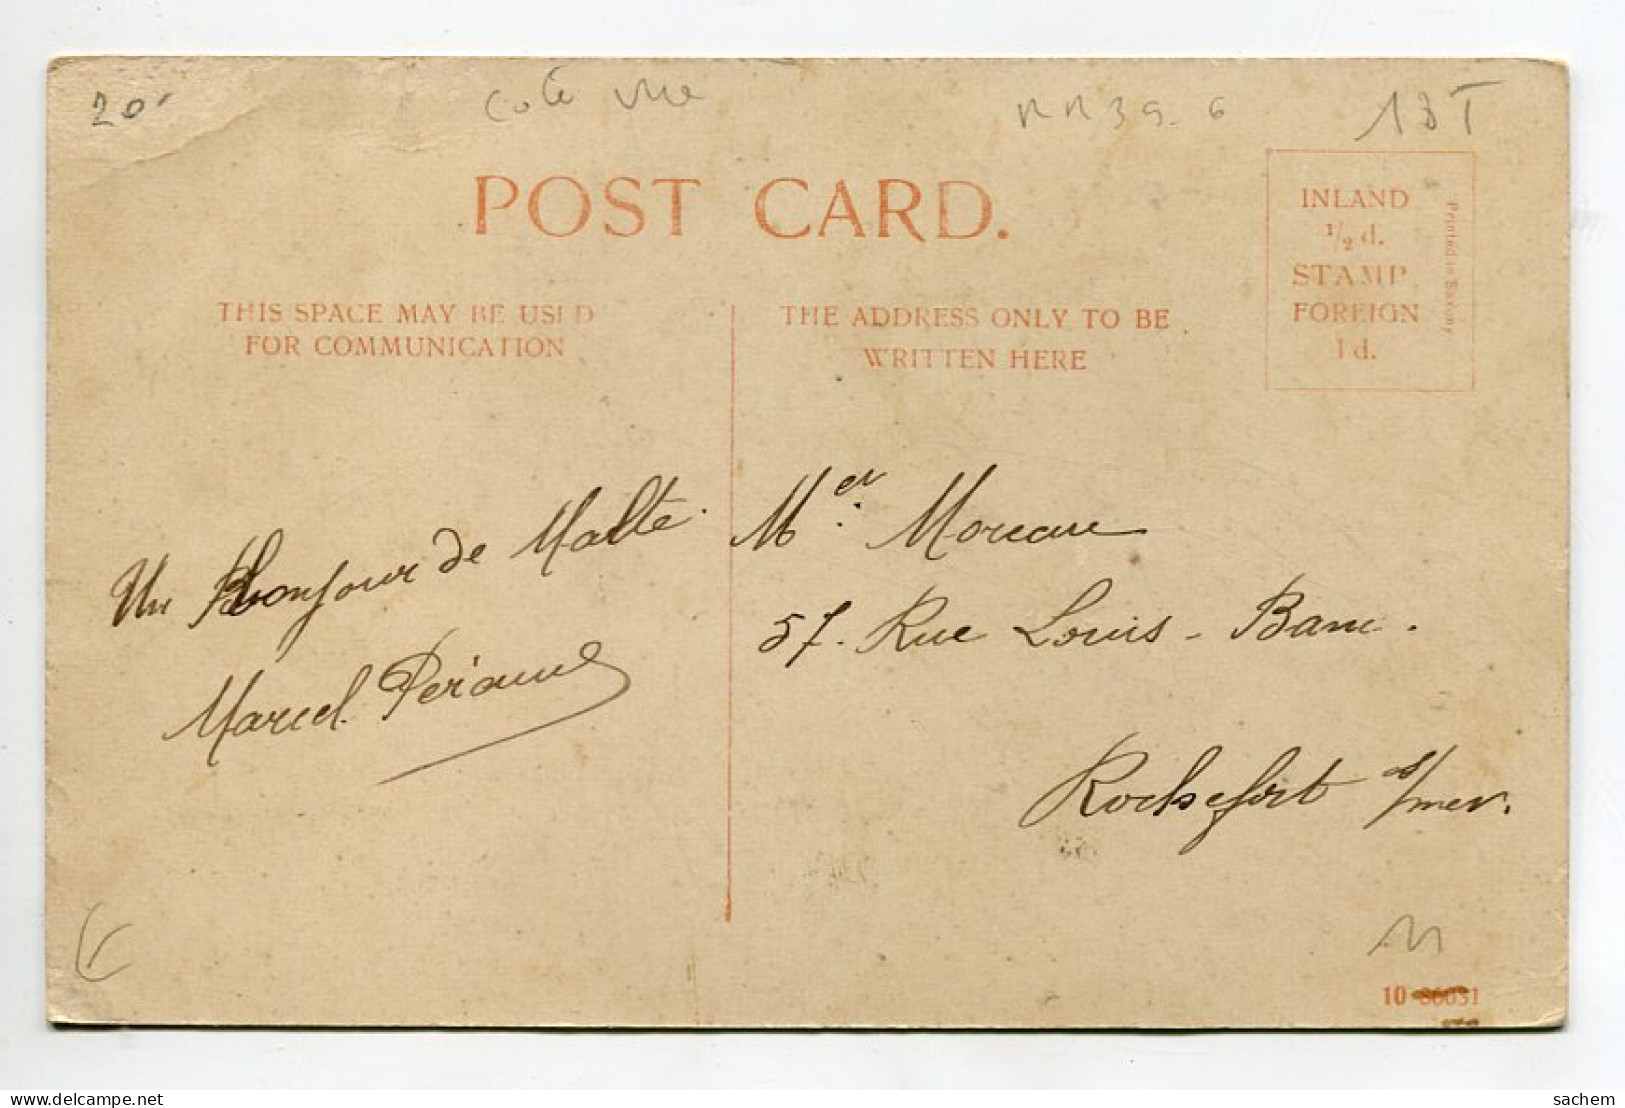 20
POST CARD.
INLAND
1/2 d.
STAMP
FOREIGN
1 d.
Printed in Saxony
THIS SPACE MAY BE USED
FOR COMMUNICATION
THE ADDRESS ONLY TO BE
WRITTEN HERE
Un Bonjour de Malte.
Marcel
Mer. Moreau
57. Rue Louis-
Rochefort s/mer.
10 86031
delcampe.net
sachem